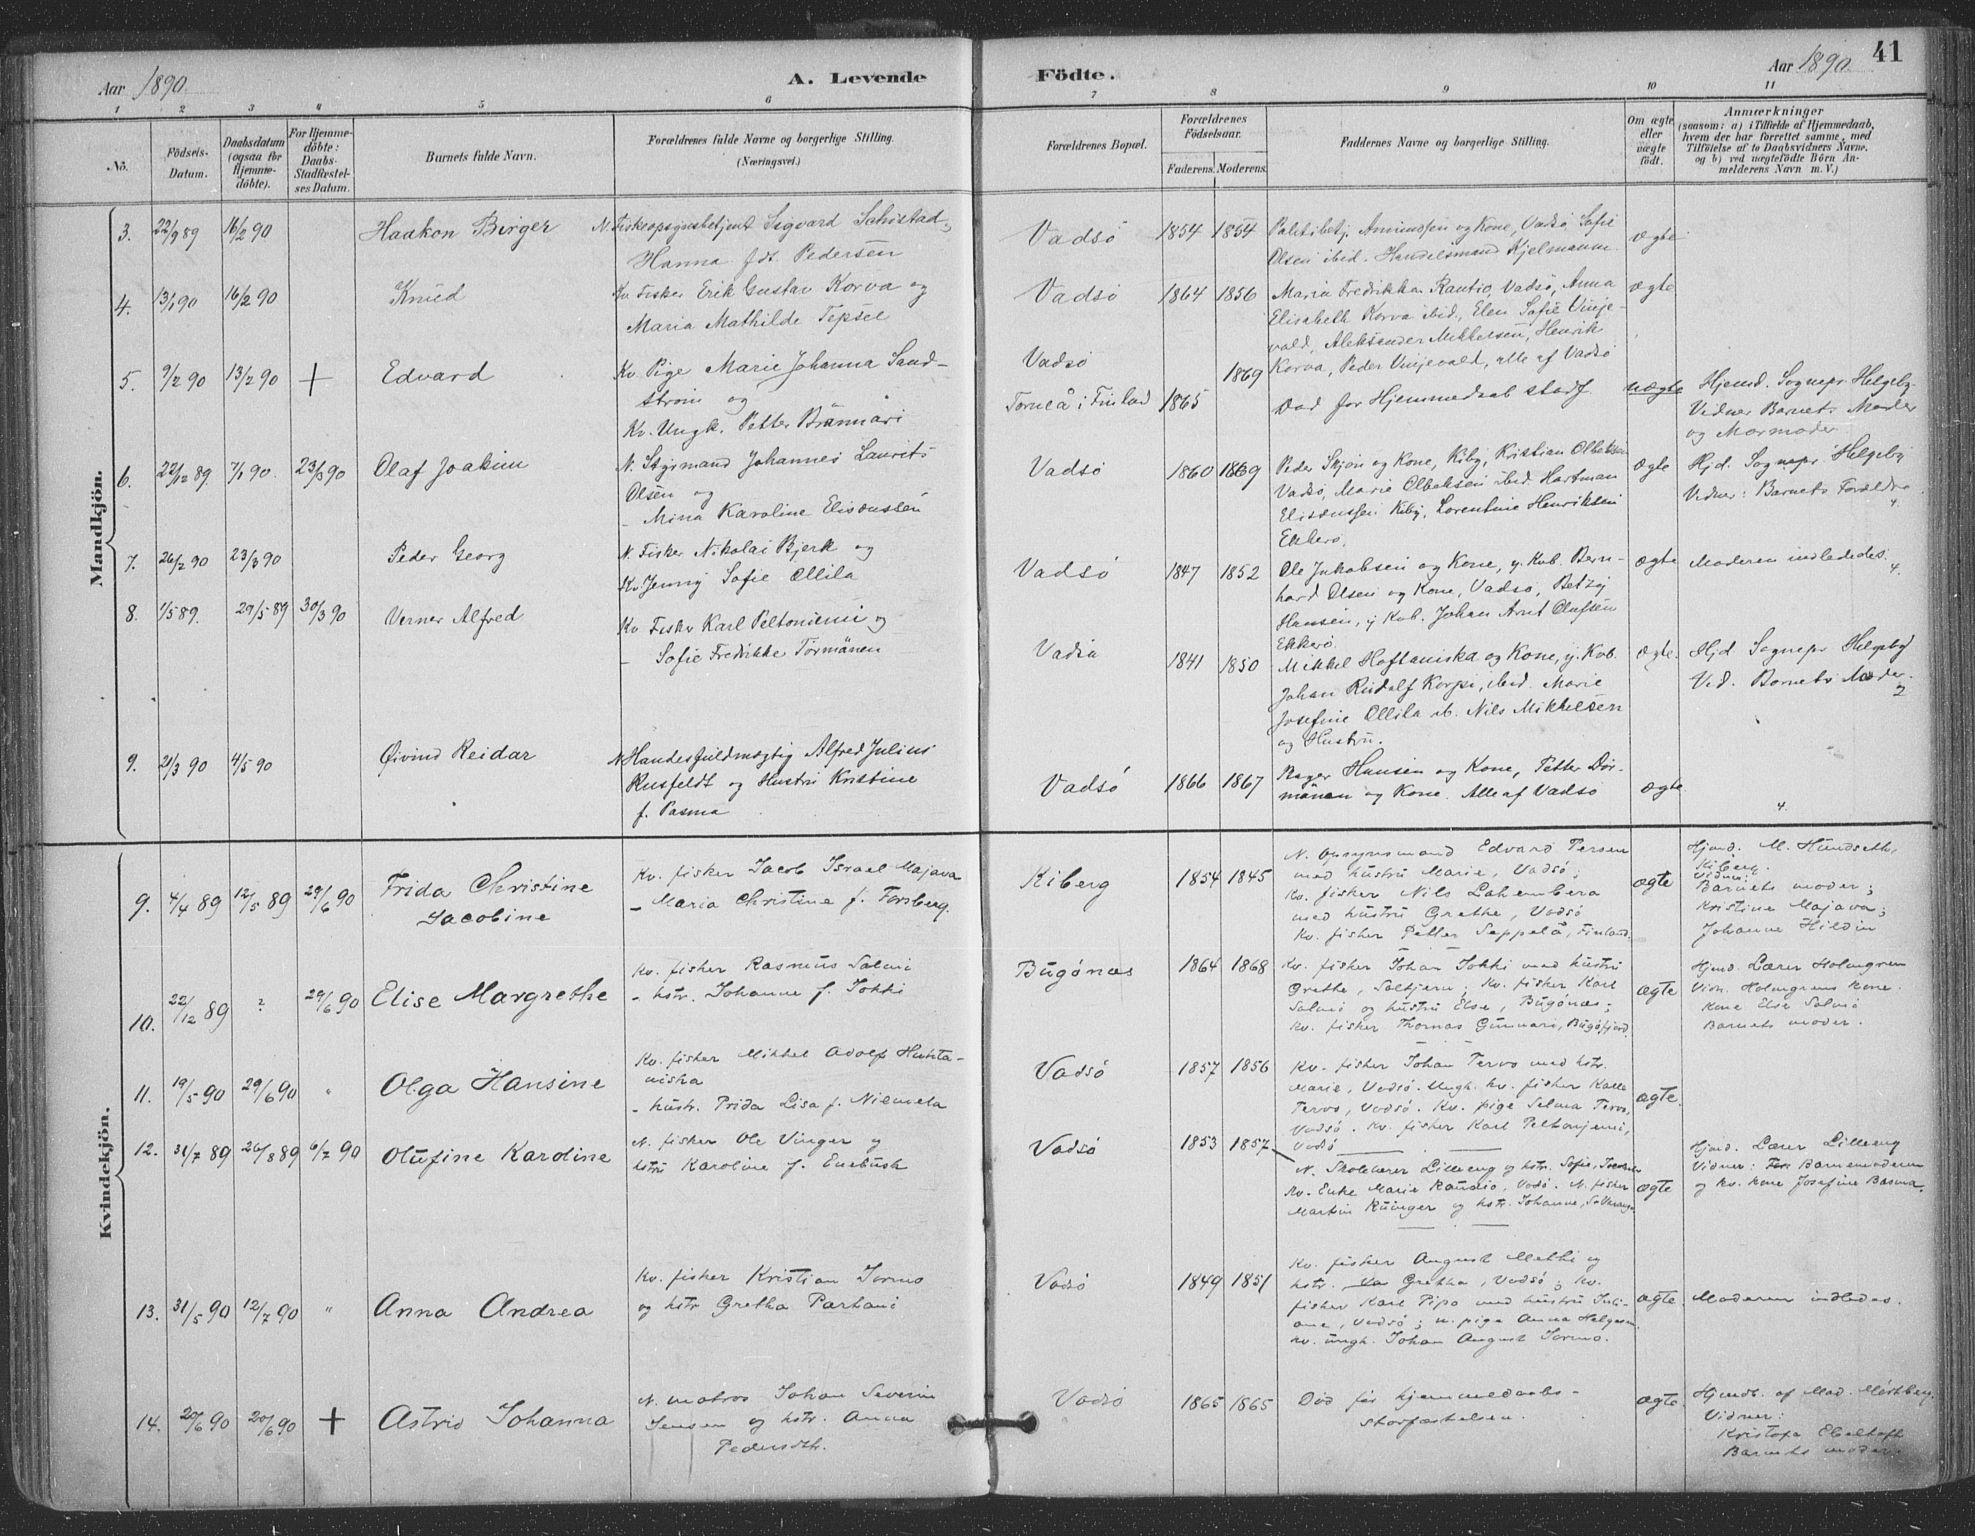 Aar 1890.
A. Levende
Födte.
Aar 1890.
41
1 2 3 4 5 6 7 8 9 10 11
No.
Födsels-
Datum.
Daabsdatum
(ogsaa for
Hjemme-
döbte).
For Hjemme-
döbte:
Daabs-
Stadfæstel-
ses Datum.
Barnets fulde Navn.
Forældrenes fulde Navne og borgerlige Stilling.
(Næringsvei.)
Forældrenes Bopæl.
Forældrenes
Födselsaar.
Faderens. Moderens.
Faddernes Navne og borgerlige Stilling.
Om ægte
eller
uægte
födt.
Anmærkninger
(saasom: a) i Tilfælde af Hjemmedaab,
hvem der har forrettet samme, med
Tilföielse af to Daabsvidners Navne,
og b) ved uægtefödte Börn An-
melderens Navn m. V.)
Mandkjön.
3. 22/9 89 16/2 90 Haakon Birger
N. Fiskeopsynsbetjent Sigvard Schistad
Hanna fdt. Pedersen
Vadsö 1854 1854
og Kone, Vadsö, Sofie
Olsen ibid. Handelsmand Kjelmann
ægte
4. 13/1 90 16/2 90 Knud
Kv. Fisker Erik Gustav Korva og
Maria Mathilde Tepsel
Vadsö 1864 1856
Maria Fredrikka Rautio, Vadsö, Anna
Elisabeth Korva ibid, Elen Sofie Vinje-
vald, Aleksander Mikkelsen, Henrik
Korva, Peder Vinjevald, alle af Vadsö
ægte
5. 9/2 90 13/2 90 + Edvard
Kv. Pige Marie Johanna Sand-
ström og
Kv. Ungk. Petter Brännäri
Vadsö 1869
Torneå i Finland 1865
Död før Hjemmedaab stadf.
uægte
Hjemd. Sognepr. Helgeby
Vidner Barnets Moder
og Mormoder
6. 22/12 89 7/1 90. 23/3 90 Olaf Joakim
N. Styrmand Johannes Laurits
Olsen og
– Mina Karoline Elisæussen
Vadsö 1860 1869
Peder Skjön og Kone, Kiby, Kristian Olbeksen
Vadsö, Marie Olbeksen ibid. Hartman
Elisæussen Kiby, Lorentine Henriksen
Ekkerö.
ægte
Hjd. Sognepr. Helgeby
Vidner: Barnets Forældre
4.
7. 26/2 90 23/3 90 Peder Georg
N. Fisker Nikolai Bjerk og
Kv. Jenny Sofie Ollila
Vadsö 1847 1852
Ole Jakobsen og Kone, y. Kvb. Bern-
hard Olsen og Kone, Vadsö, Betzy
Hansen, y Kvb. Johan Arnt Olufsen
Ekkerö
ægte
Moderen indlededes.
4.
8. 1/5 89. 29/5 89 30/3 90 Verner Alfred
Kv. Fisker Karl Peltoniemi og
– Sofie Fredrikke Törmänen
Vadsö 1841 1850
Mikkel Hoftaniska og Kone, y. Kvb.
Johan Rudolf Korpi, ibid. Marie
Josefine Ollila ib. Nils Mikkelsen
og Hustru.
ægte.
Hjd. Sognepr Helgeby
Vid. Barnets Moder.
2
9. 21/3 90 4/5 90 Öivind Reidar
N. Handelsfuldmægtig Alfred Julius
Rusfeldt og Hustru Kristine
f. Pasma
Vadsö 1866 1867
Bager Hansen og Kone, Petter Dör-
mänen og Kone. Alle af Vadsö
ægte
4.
Kvindekjön.
9. 4/4 89 12/5 89 29/6 90 Frida Christine
Jacobine
Kv. fisker Jacob Israel Majava
– Maria Christine f. Forsberg.
Kiberg 1854 1845
N. Opsynsmand Edvard Persen
med hustru Marie, Vadsö;
Kv. fisker Nils Lahenberg
med hustru Grethe, Vadsö
Kv. fisker Petter Seppelä, Finland.
ægte
Hjmd. M. Hundseth,
Kiberg.
Vidner:
Barnets moder;
Kristine Majava;
Johanne Hildin
10. 22/12 89 ? 29/6 90 Elise Margrethe
Kv. fisker Rasmus Salmi
– hstr. Johanne f. Jokki
Bugönæs 1864 1868
Kv. fisker Johan Jokki med hustru
Grethe, Saltjern; Kv. fisker Karl
Salmi og hustru Else, Bugönæs;
Kv. fisker Thomas Gunnari, Bugöfjord
ægte
Hjmd. Lærer Holmgren
Vidn. Holmgrens kone.
Kone Else Salmi
Barnets moder.
11. 19/5 90 29/6 90 " Olga Hansine
Kv. fisker Mikkel Adolf Huhta-
niska
– hustr. Frida Lisa f. Niemela
Vadsö 1857 1856
Kv. fisker Johan Tervo med hstr.
Marie, Vadsö. Ungk. kv. fisker Kalle
Tervo, Vadsö. Kv. pige Selma Tervo,
Vadsö. Kv. fisker Karl Peltonjemi,
Vadsö
ægte.
12. 31/7 89 26/8 89 6/7 90 Olufine Karoline
N. fisker Ole Vinger og
hstru Karoline f. Enebusk
Vadsö 1853 1857
N. Skolelærer Lilleeng og hstr. Sofie,
Kv. Enke Marie Randio, Vadsö. N. fisker
Martin Ruinger og hstr. Johanne,
ægte
Hjmd. Lærer Lilleeng
Vidner: Barnemoderen
og kv. kone Josefine Basma.
13. 31/5 90 12/7 90 " Anna Andrea
Kv. fisker Kristian Jormo
og hstr Gretha Partani
Vadsö 1849 1851
Kv. fisker August Mathi og
hstr. Gretha, Vadsö; Kv.
fisker Karl Pipo med hustru Juli-
ane, Vadsö; n. pige Anna Helgesen
kv. ungk. Johan August Jormo.
ægte.
Moderen indledes.
14. 20/6 90 20/6 90 + Astrid Johanna
N. matros Johan Severin
Jensen og hstr. Anna
Pedersdtr.
Vadsö 1865 1865
Död før hjemmedaabs-
stadfæstelsen.
ægte.
Hjmdb. af Mad.
Vidner:
Kristofa Ebeltoft
Barnets moder.